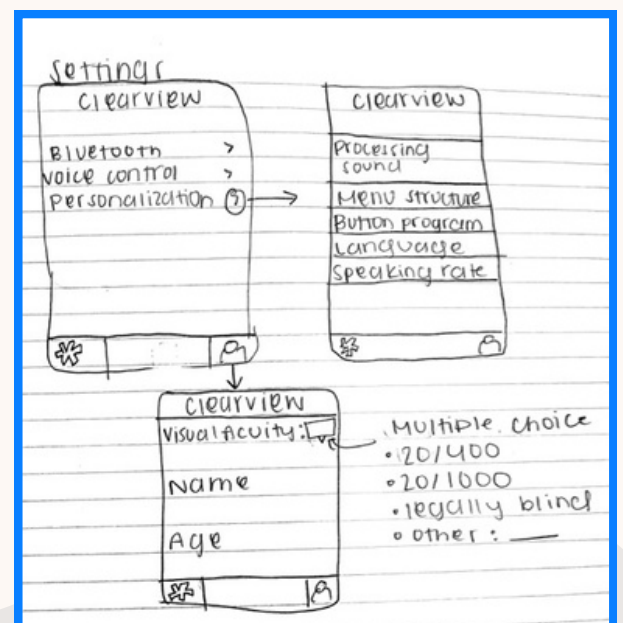 Settings
Clearview
Bluetooth >
voice control >
Personalization >
Clearview
Processing
sound
Menu structure
Button program
Language
Speaking rate
Clearview
Visual Acuity:
Name
Age
Multiple choice
• 20/400
• 20/1000
• legally blind
• other: ___